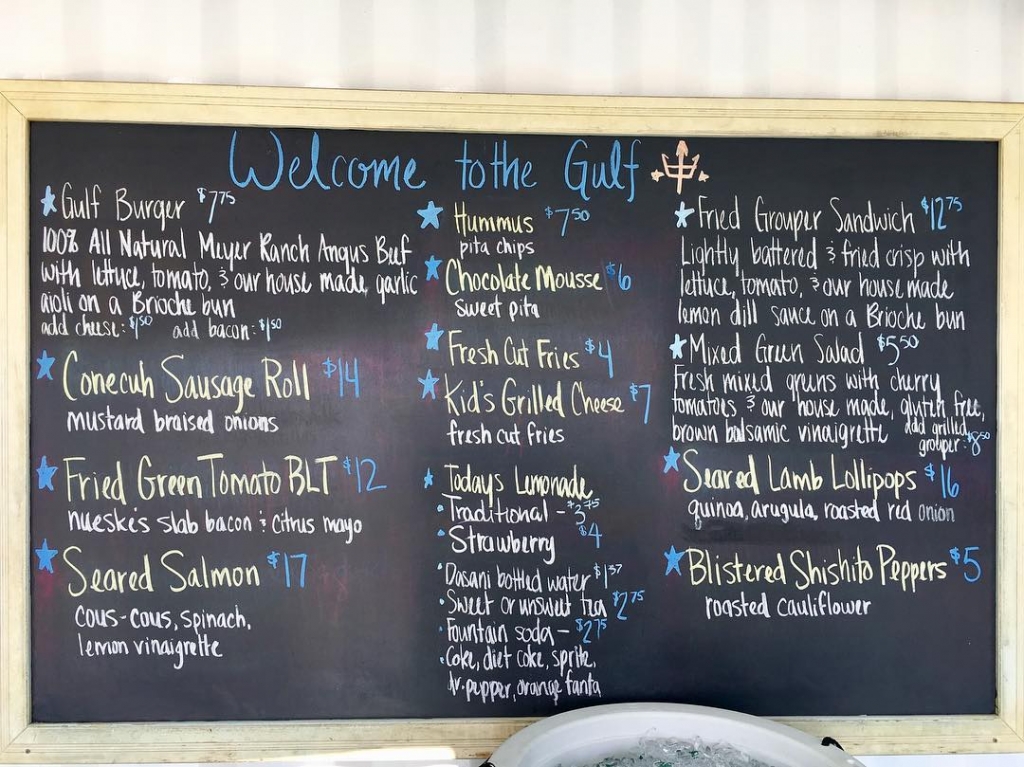 Welcome to the Gulf
Gulf Burger $7.75
100% All Natural Meyer Ranch Angus Beef
with lettuce, tomato, & our house made, garlic
aioli on a Brioche bun
add cheese: $1.50 add bacon: $1.50
Conecuh Sausage Roll $14
mustard braised onions
Fried Green Tomato BLT $12
nueske's slab bacon & citrus mayo
Seared Salmon $17
cous-cous, spinach,
lemon vinaigrette
Hummus $7.50
pita chips
Chocolate Mousse $6
sweet pita
Fresh Cut Fries $4
Kid's Grilled Cheese $7
fresh cut fries
Todays Lemonade
Traditional - $3.75
Strawberry $4
Dasani bottled water $1.37
Sweet or unsweet tea $2.75
Fountain soda - $2.75
Coke, diet coke, sprite,
dr. pepper, orange fanta
Fried Grouper Sandwich $12.75
Lightly battered & fried crisp with
lettuce, tomato, & our house made
lemon dill sauce on a Brioche bun
Mixed Green Salad $5.50
Fresh mixed greens with cherry
tomatoes & our house made, gluten free,
brown balsamic vinaigrette add grilled
grouper: $8.50
Seared Lamb Lollipops $16
quinoa, arugula, roasted red onion
Blistered Shishito Peppers $5
roasted cauliflower